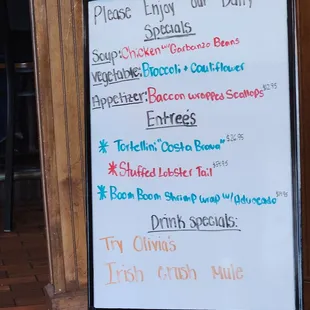 Please Enjoy our Daily
Specials
Soup: Chicken w/ Garbanzo Beans
Vegetable: Broccoli + Cauliflower
Appetizer: Baccon wrapped Scallops
Entreé's
* Tortellini "Costa Brava"
* Stuffed Lobster Tail
* Boom Boom Shrimp wrap w/ Advocado
Drink Specials:
Try Olivia's
Irish Crush Mule